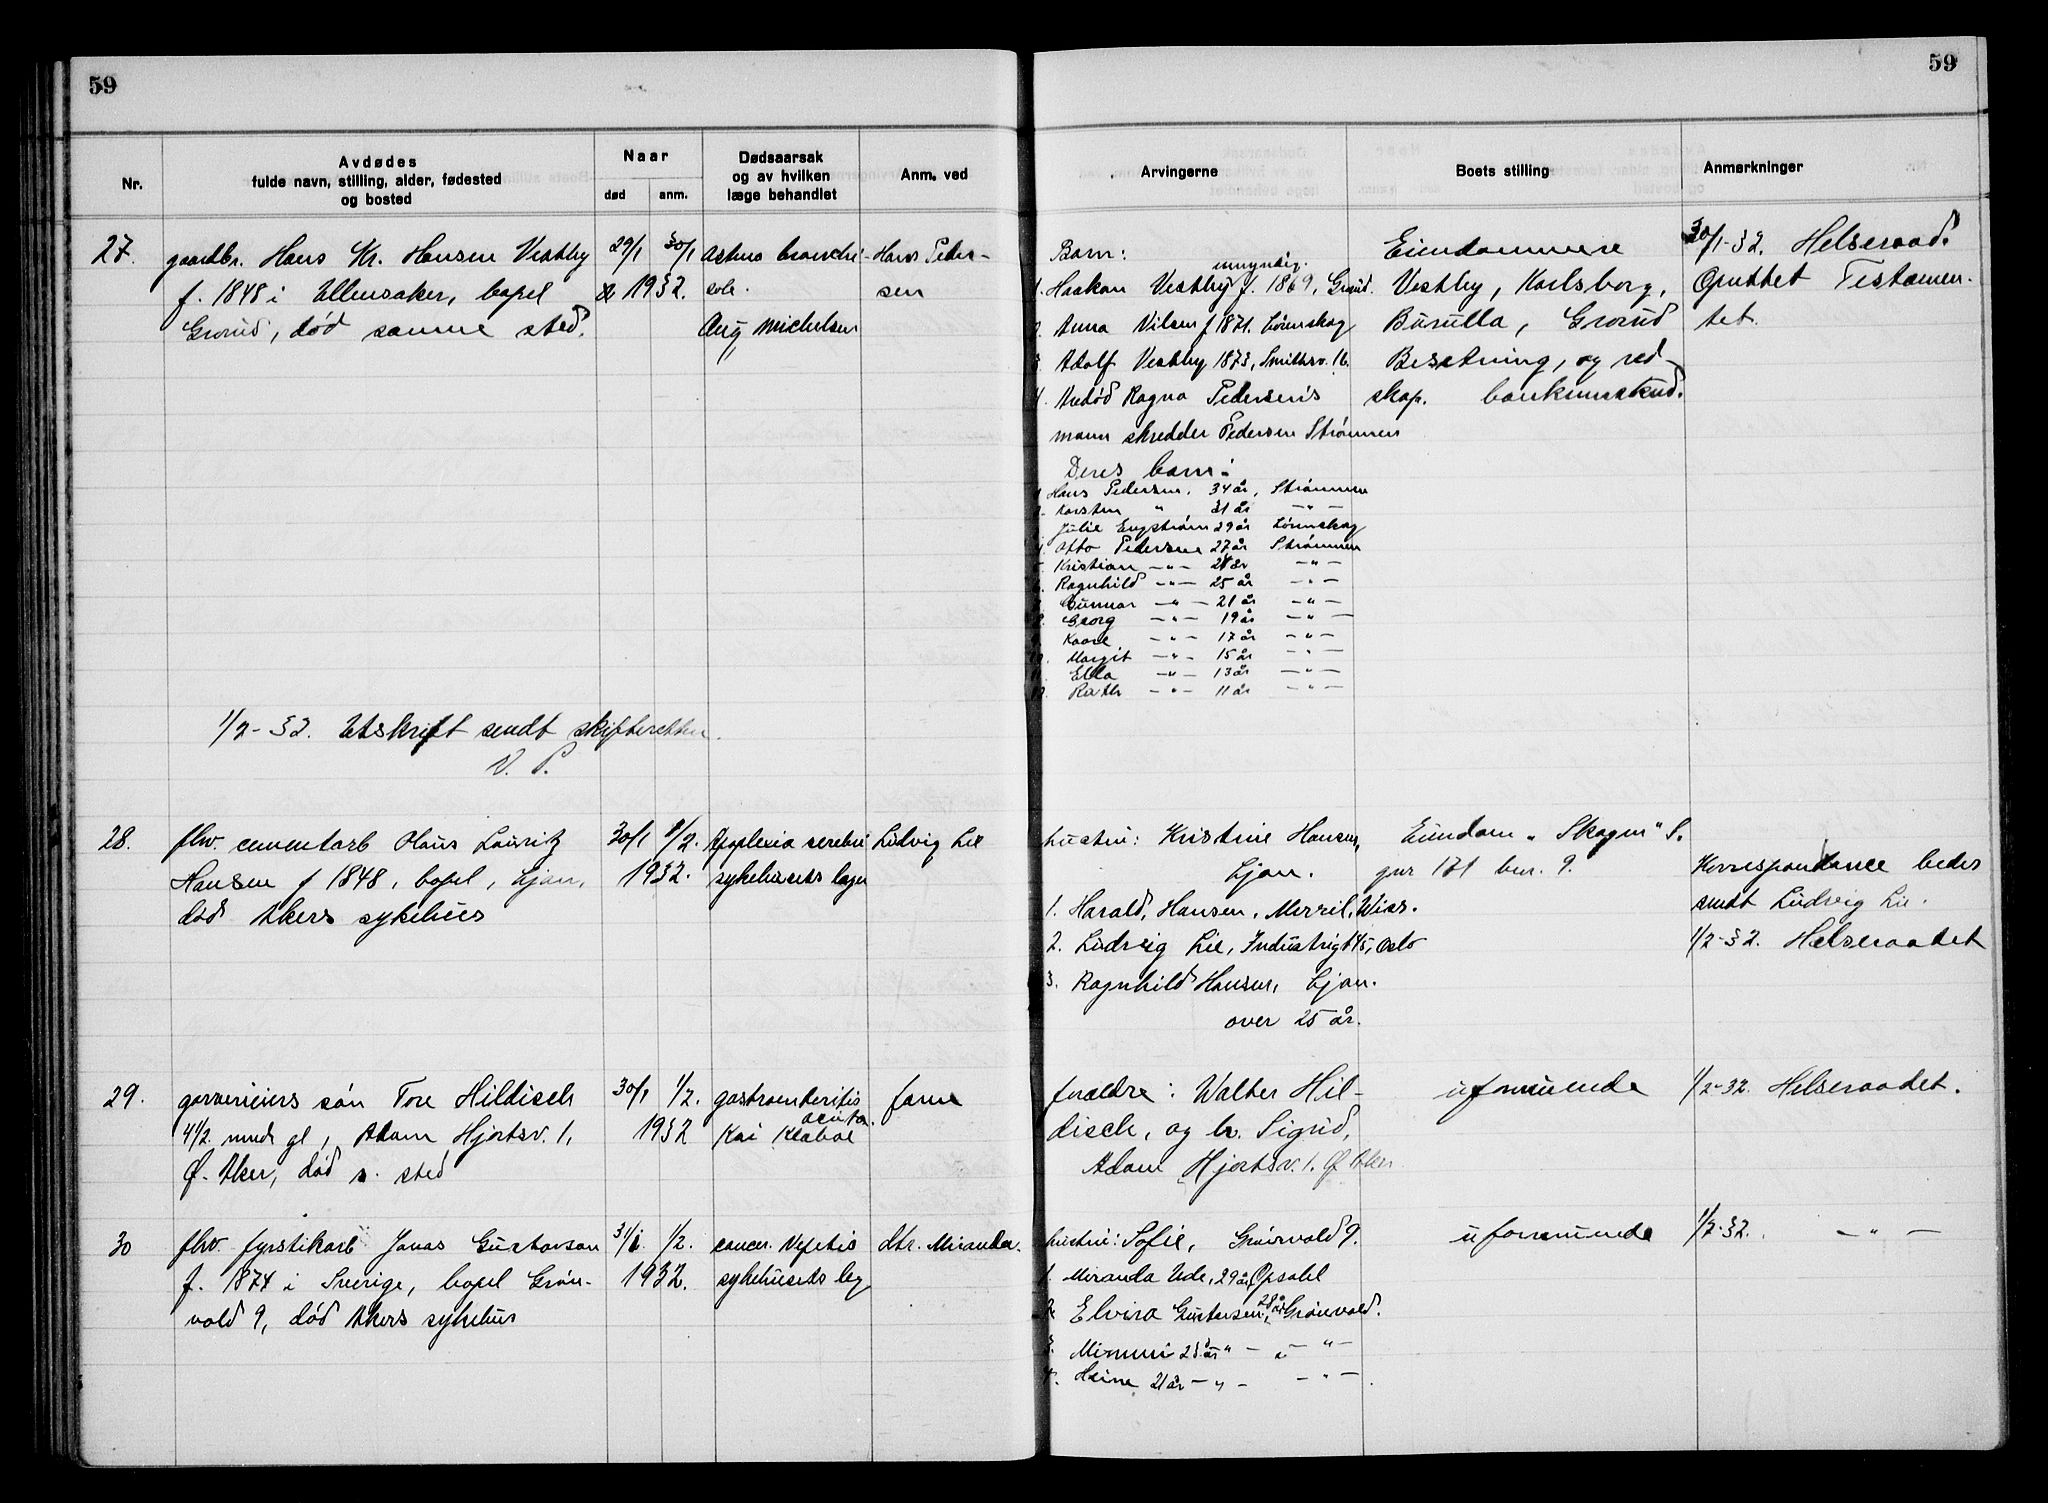 59
59
Nr.
Avdødes
fulde navn, stilling, alder, fødested
og bosted
Naar
død
anm.
Dødsaarsak
og av hvilken
læge behandlet
Anm. ved
Arvingerne
Boets stilling
Anmerkninger
27. gaardbr. Hans Kr. Hansen Vestby 29/1 30/1 Astma bronchi- Hans Peder-
f. 1848 i Ullensaker, bopel 1932. sen
Grorud, død samme sted. Aug Michelsen
Barn:
umyndig.
1. Haakon Vestby f. 1869, Grorud.
2. Anna Nilsen f 1871. Lörenskog
3. Adolf Vestby 1873, Smithsv. 16.
4. Avdød Ragna Pedersen's
mann skredder Pedersen Strömmen
Deres barn:
1 Hans Pedersen. 34 år, Strömmen
2. Karsten " 31 år — " —
Julie Engström 29 år Lörenskog
4. Otto Pedersen 27 år Strömmen
Kristian — " — år — " —
Ragnhild — " — 25 år — " —
Gunnar — " — 21 år — " —
8. Georg — " — 19 år — " —
Kaare — " — 17 år — " —
Margit — " — 15 år — " —
Ella — " — 13 år — " —
12. Ruth — " — 11 år — " —
Eiendommene
Vestby, Karlsborg,
Grorud
Besetning, og red-
skap. bankinnskud.
30/1-32. Helseraad.
Oprettet Testamen-
tet.
1/2-32. Utskrift sendt skifteretten.
V. P.
28. fhv. cementarb Hans Lauritz 30/1 1/2. Apoplexia cerebri Ludvig Lie
Hansen f 1848, bopel, Ljan, 1932. sykehusets lege
död Akers sykehus
hustru: Kristine Hansen,
Ljan.
1. Harald, Hansen, Merril, Wisc.
2. Ludvig Lie, Industrigt 45, Oslo
3. Ragnhild Hansen, Ljan.
over 25 år.
Eiendom "Skogen" S.
gnr 181 bnr. 9.
Korrespondance bedes
sendt Ludvig Lie.
1/2-32. Helseraadet
29. garveriejers sön Tore Hildisch 30/1 1/2. gastroenteritis farne
acuta.
4 1/2 mnd gl, Adam Hjortsv. 1, 1932 Kai
Ø. Aker, död s. sted
foreldre: Walter Hil-
disch, og h. Sigrid,
Adam Hjortsv. 1. Ø Aker
uformuende
1/2-32. Helseraadet.
30 fhv. fyrstikarb Jonas Gustavson 31/1 1/2. cancer. dtr. Miranda.
f. 1874 i Sverige, bopel Grön- 1932. sykehusets leg
vold 9, död Akers sykehus
hustru: Sofie, Grönvold 9.
1. Miranda Ude, 29 år, Opsahl
28 år
2. Elvira Gustavsen, Grönvold.
3. Mimmi 25 år " — " — " —
4. Heine 21 år — " — — " — .
uformuende
1/2-32. — " —